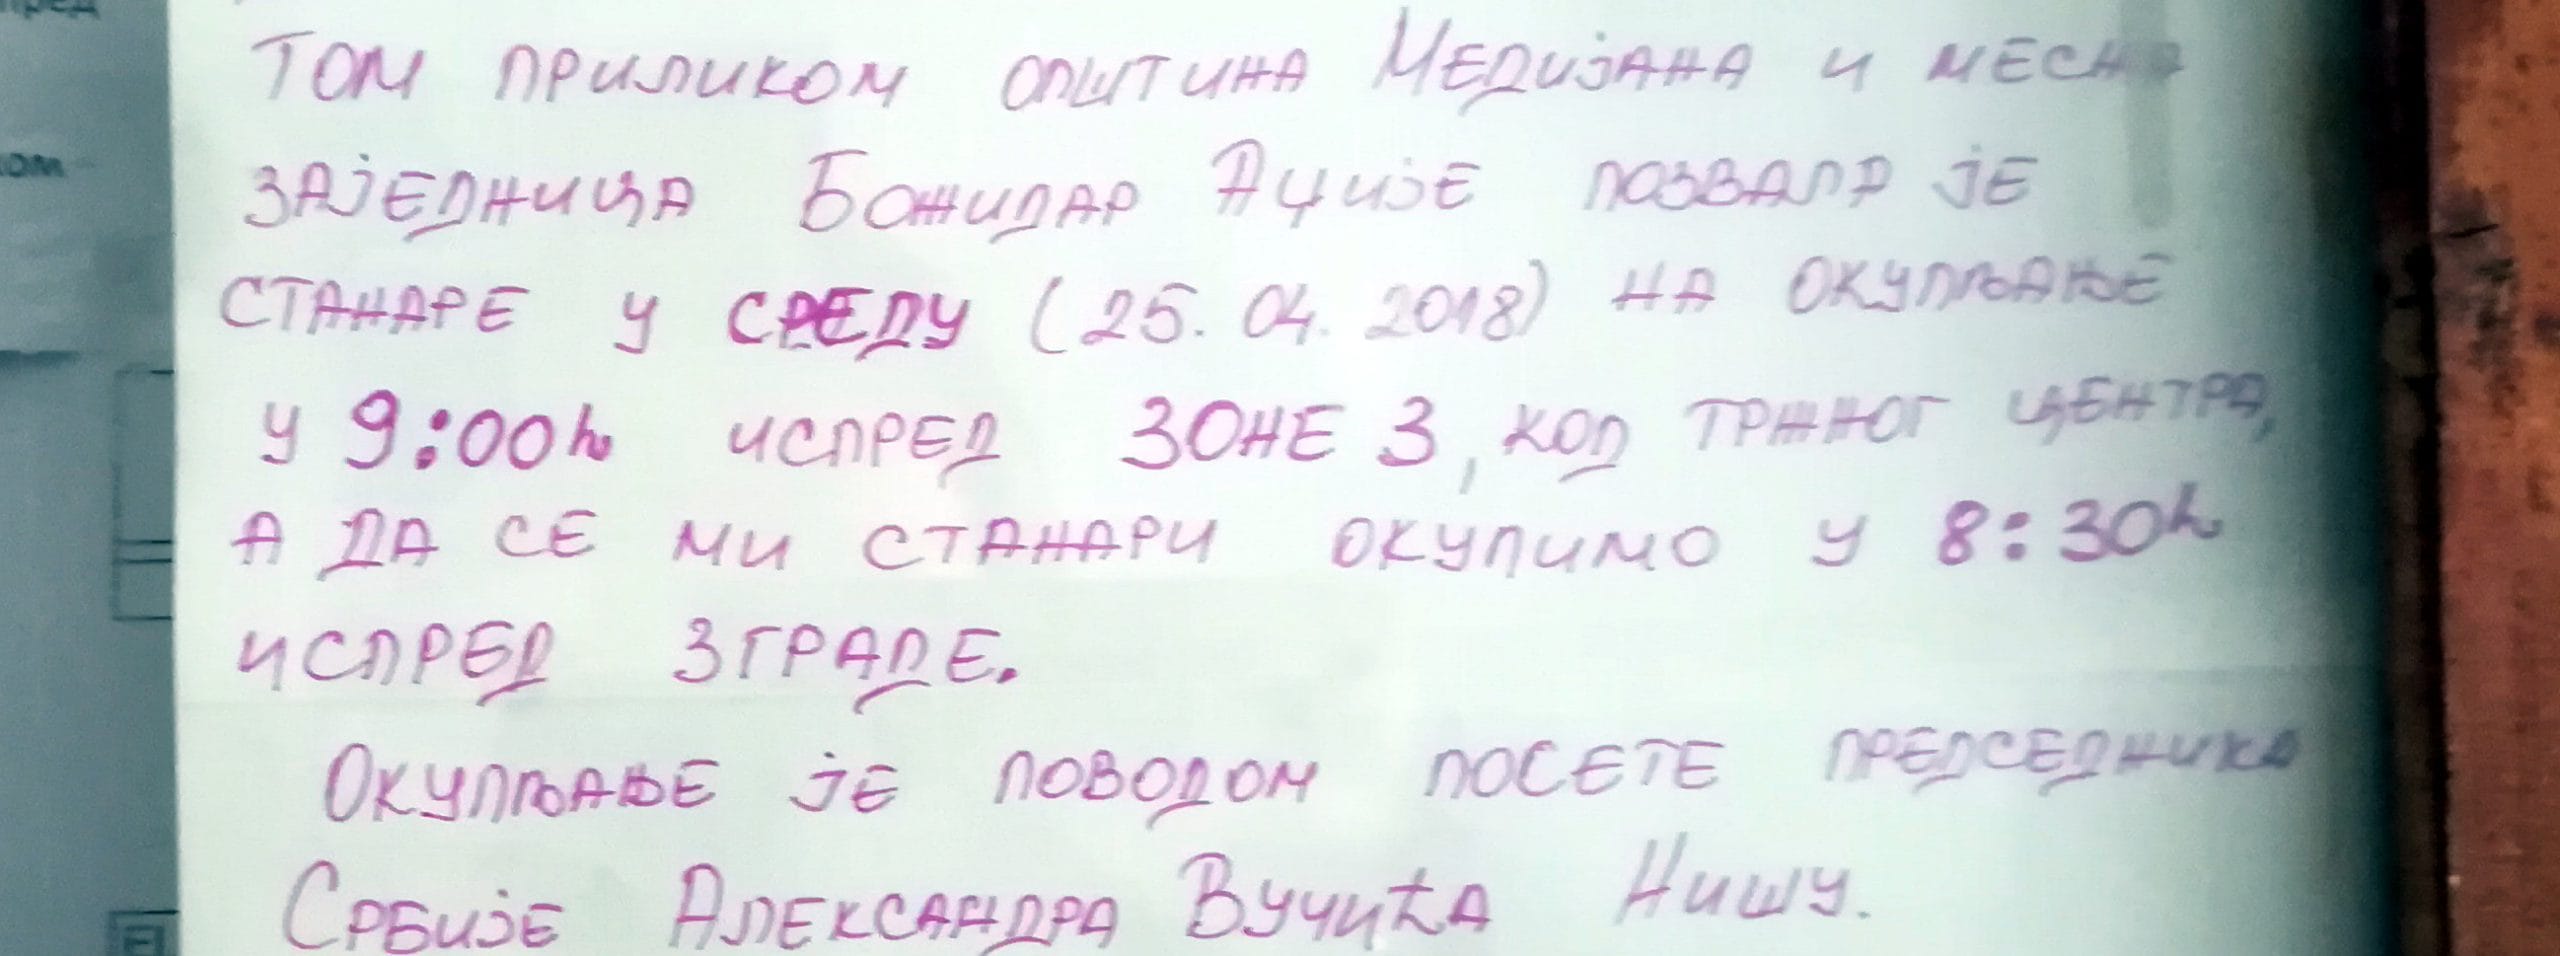 Том приликом општина Медијана и месна
заједница Божидар Аџије позвала је
станаре у среду (25. 04. 2018) на окупљање
у 9:00h испред Зоне 3, код тржног центра,
а да се ми станари окупимо у 8:30h
испред зграде.
Окупљање је поводом посете председника
Србије Александра Вучића Нишу.